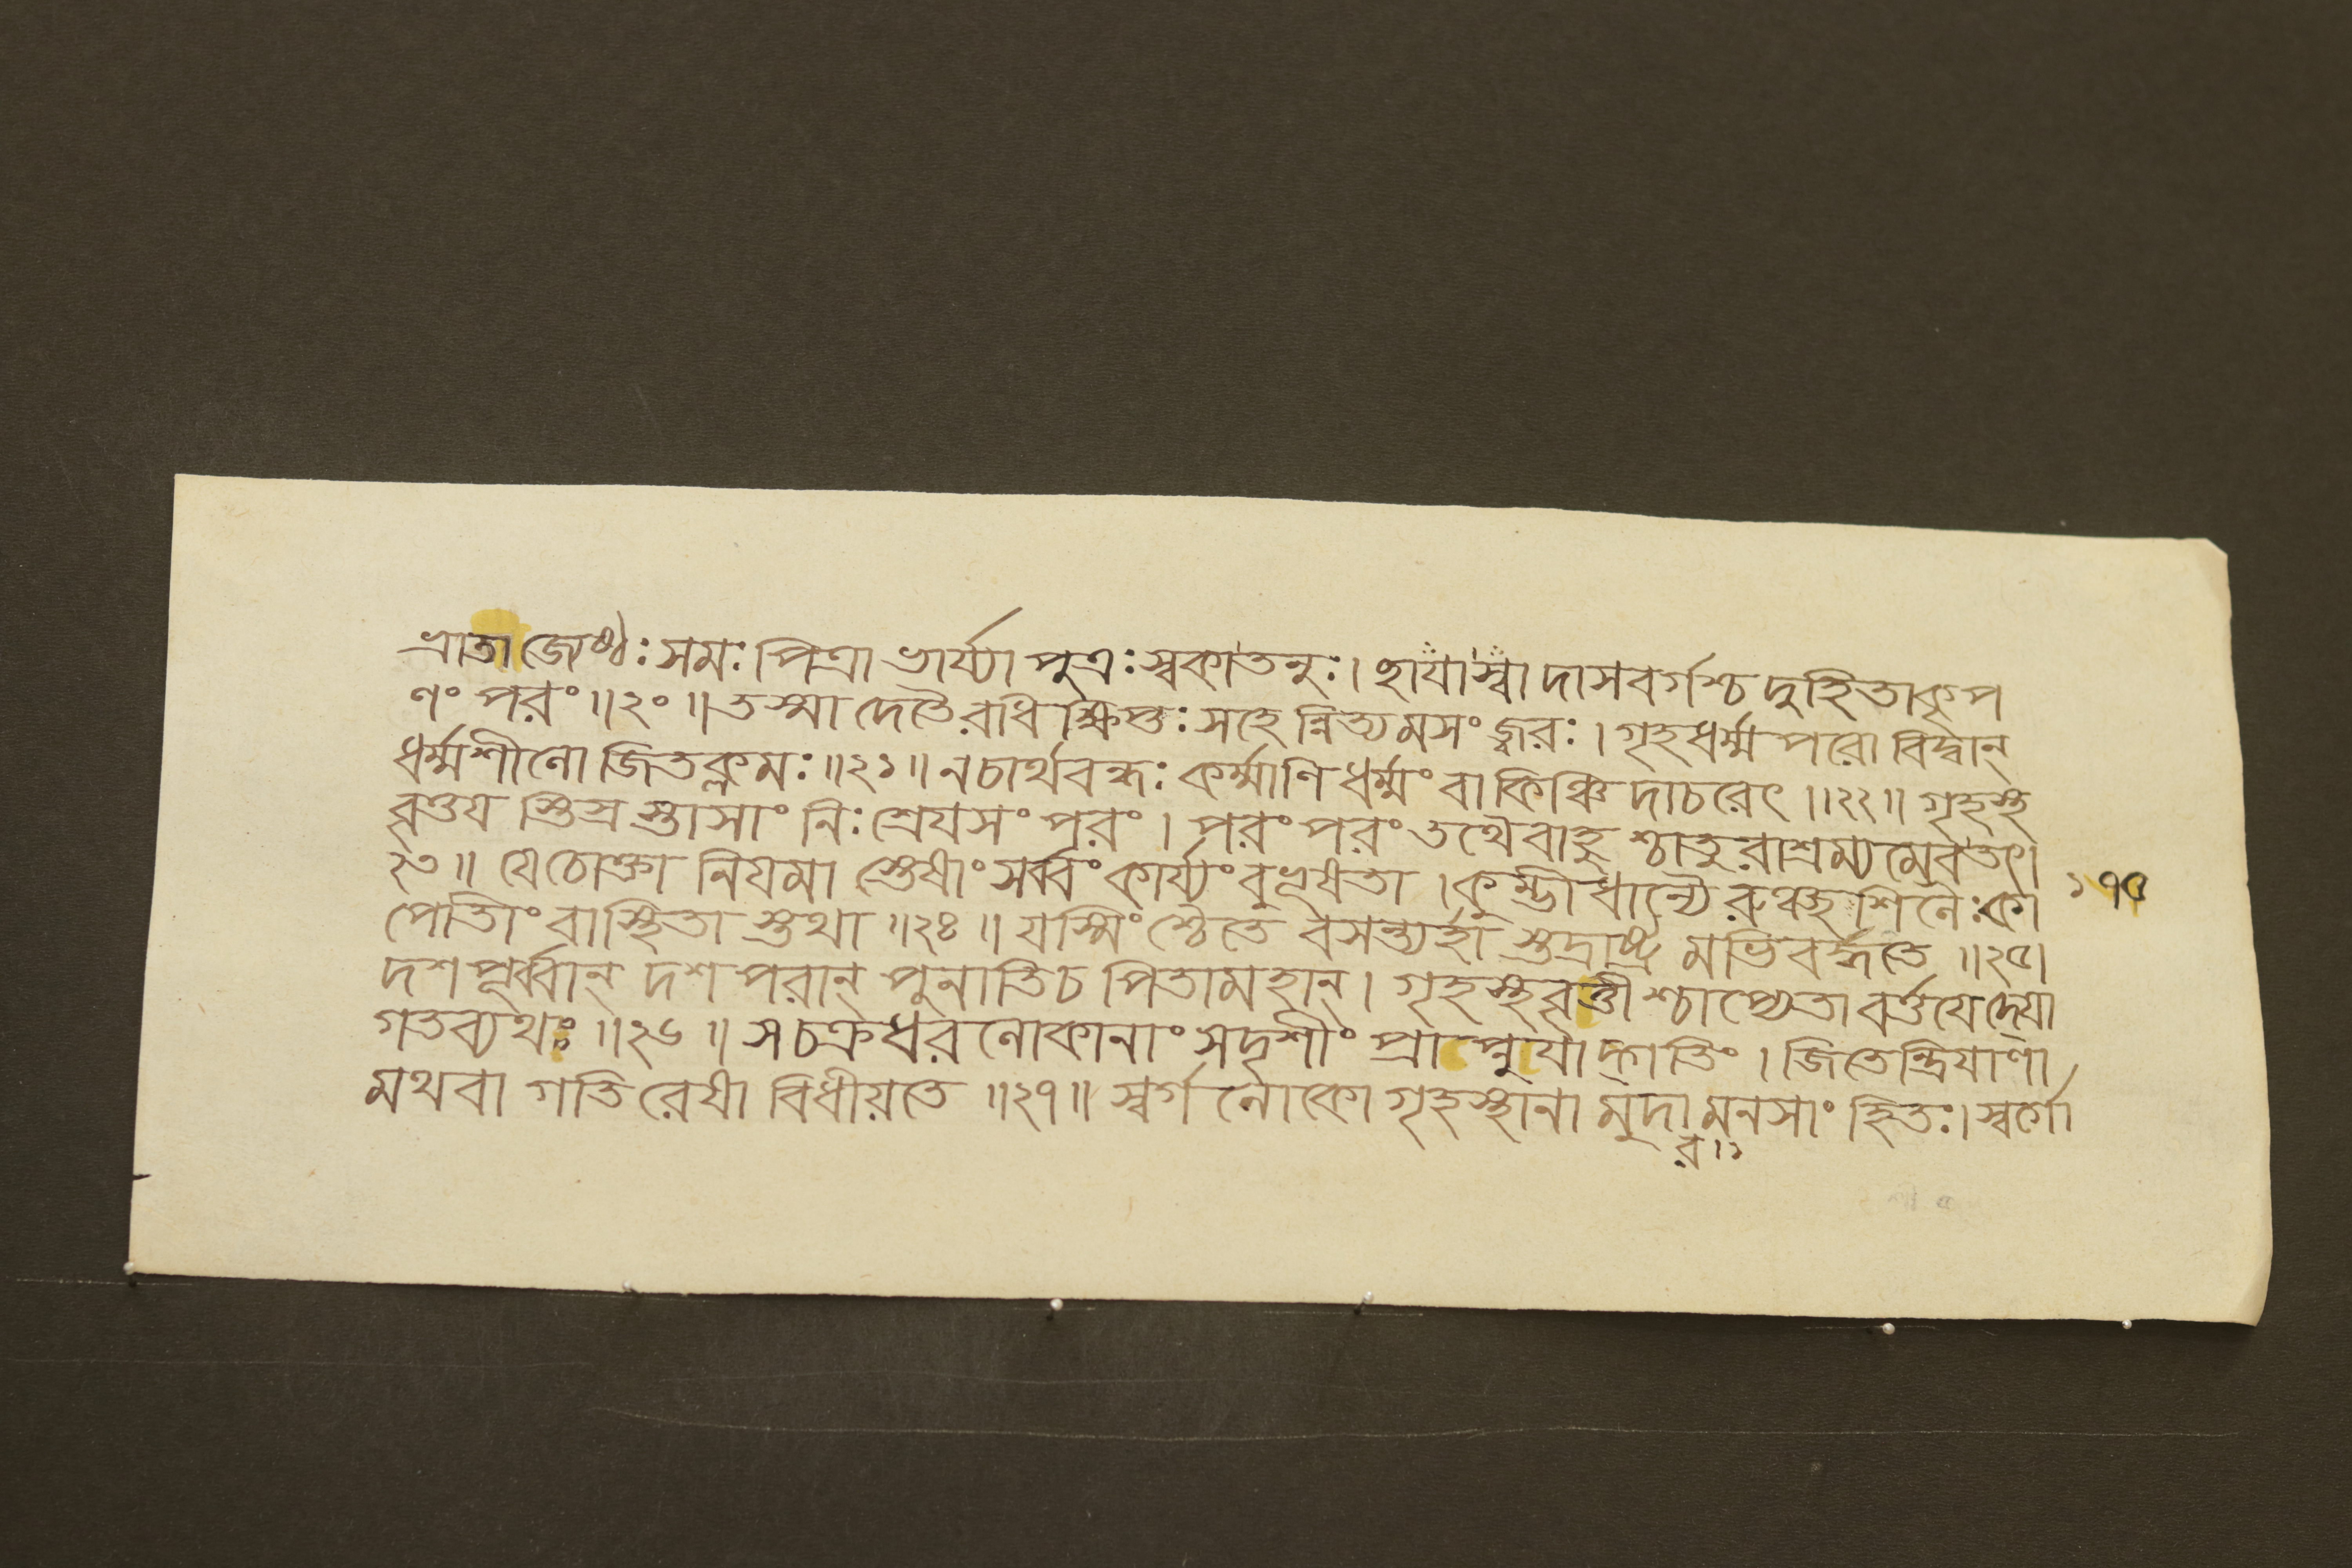 ভ্রাতা জ্যেষ্ঠঃ সমঃ পিত্রা ভার্য্যা পুত্রঃ স্বকাতনুঃ। ছায়াস্বাদাসবর্গশ্চ দুহিতাকৃপ
ণং পরং॥২০॥তস্মাদেতৈরধিক্ষিপ্তঃ সহেন্নিত্যমসংজ্বরঃ। গৃহধর্ম্মপরো বিদ্বান্
ধর্ম্মশীলো জিতক্লমঃ॥২১॥ নচার্থবদ্ধঃ কর্ম্মাণি ধর্ম্মং বা কিঞ্চিদাচরেৎ॥২২॥ গৃহস্থ
বৃত্তয স্তিস্রস্তাসাং নিঃশ্রেযসং পরং। পরং পরং তথৈবাহুশ্চাতুরাশ্রম্যমেবতৎ।
২৩॥ যেচোক্তা নিযমাস্তেষাং সর্ব্বং কার্য্যং বুভূষতা। কুম্ভীধান্যৈরুঞ্ছশিলৈঃকা
পোতিং বাস্থিতাস্তথা॥২৪॥ যস্মিংশ্চৈতে বসন্ত্যর্হাস্তদ্রাষ্ট্রমভিবর্দ্ধতে॥২৫।
দশপূর্ব্বান্ দশপরান্ পুনাতিচ পিতামহান্। গৃহস্থবৃত্তীশ্চাপ্যেতা বর্ত্তযেদ্যো
গতব্যথঃ॥২৬॥ সচক্রধরলোকানাং সদৃশীং প্রাপ্নুযাদ্গতিং। জিতেন্দ্রিযাণা
মথবা গতিরেষা বিধীয়তে॥২৭॥ স্বর্গলোকো গৃহস্থানামুদামনসাং হিতঃ। স্বর্গো
র॥১
১৭৫